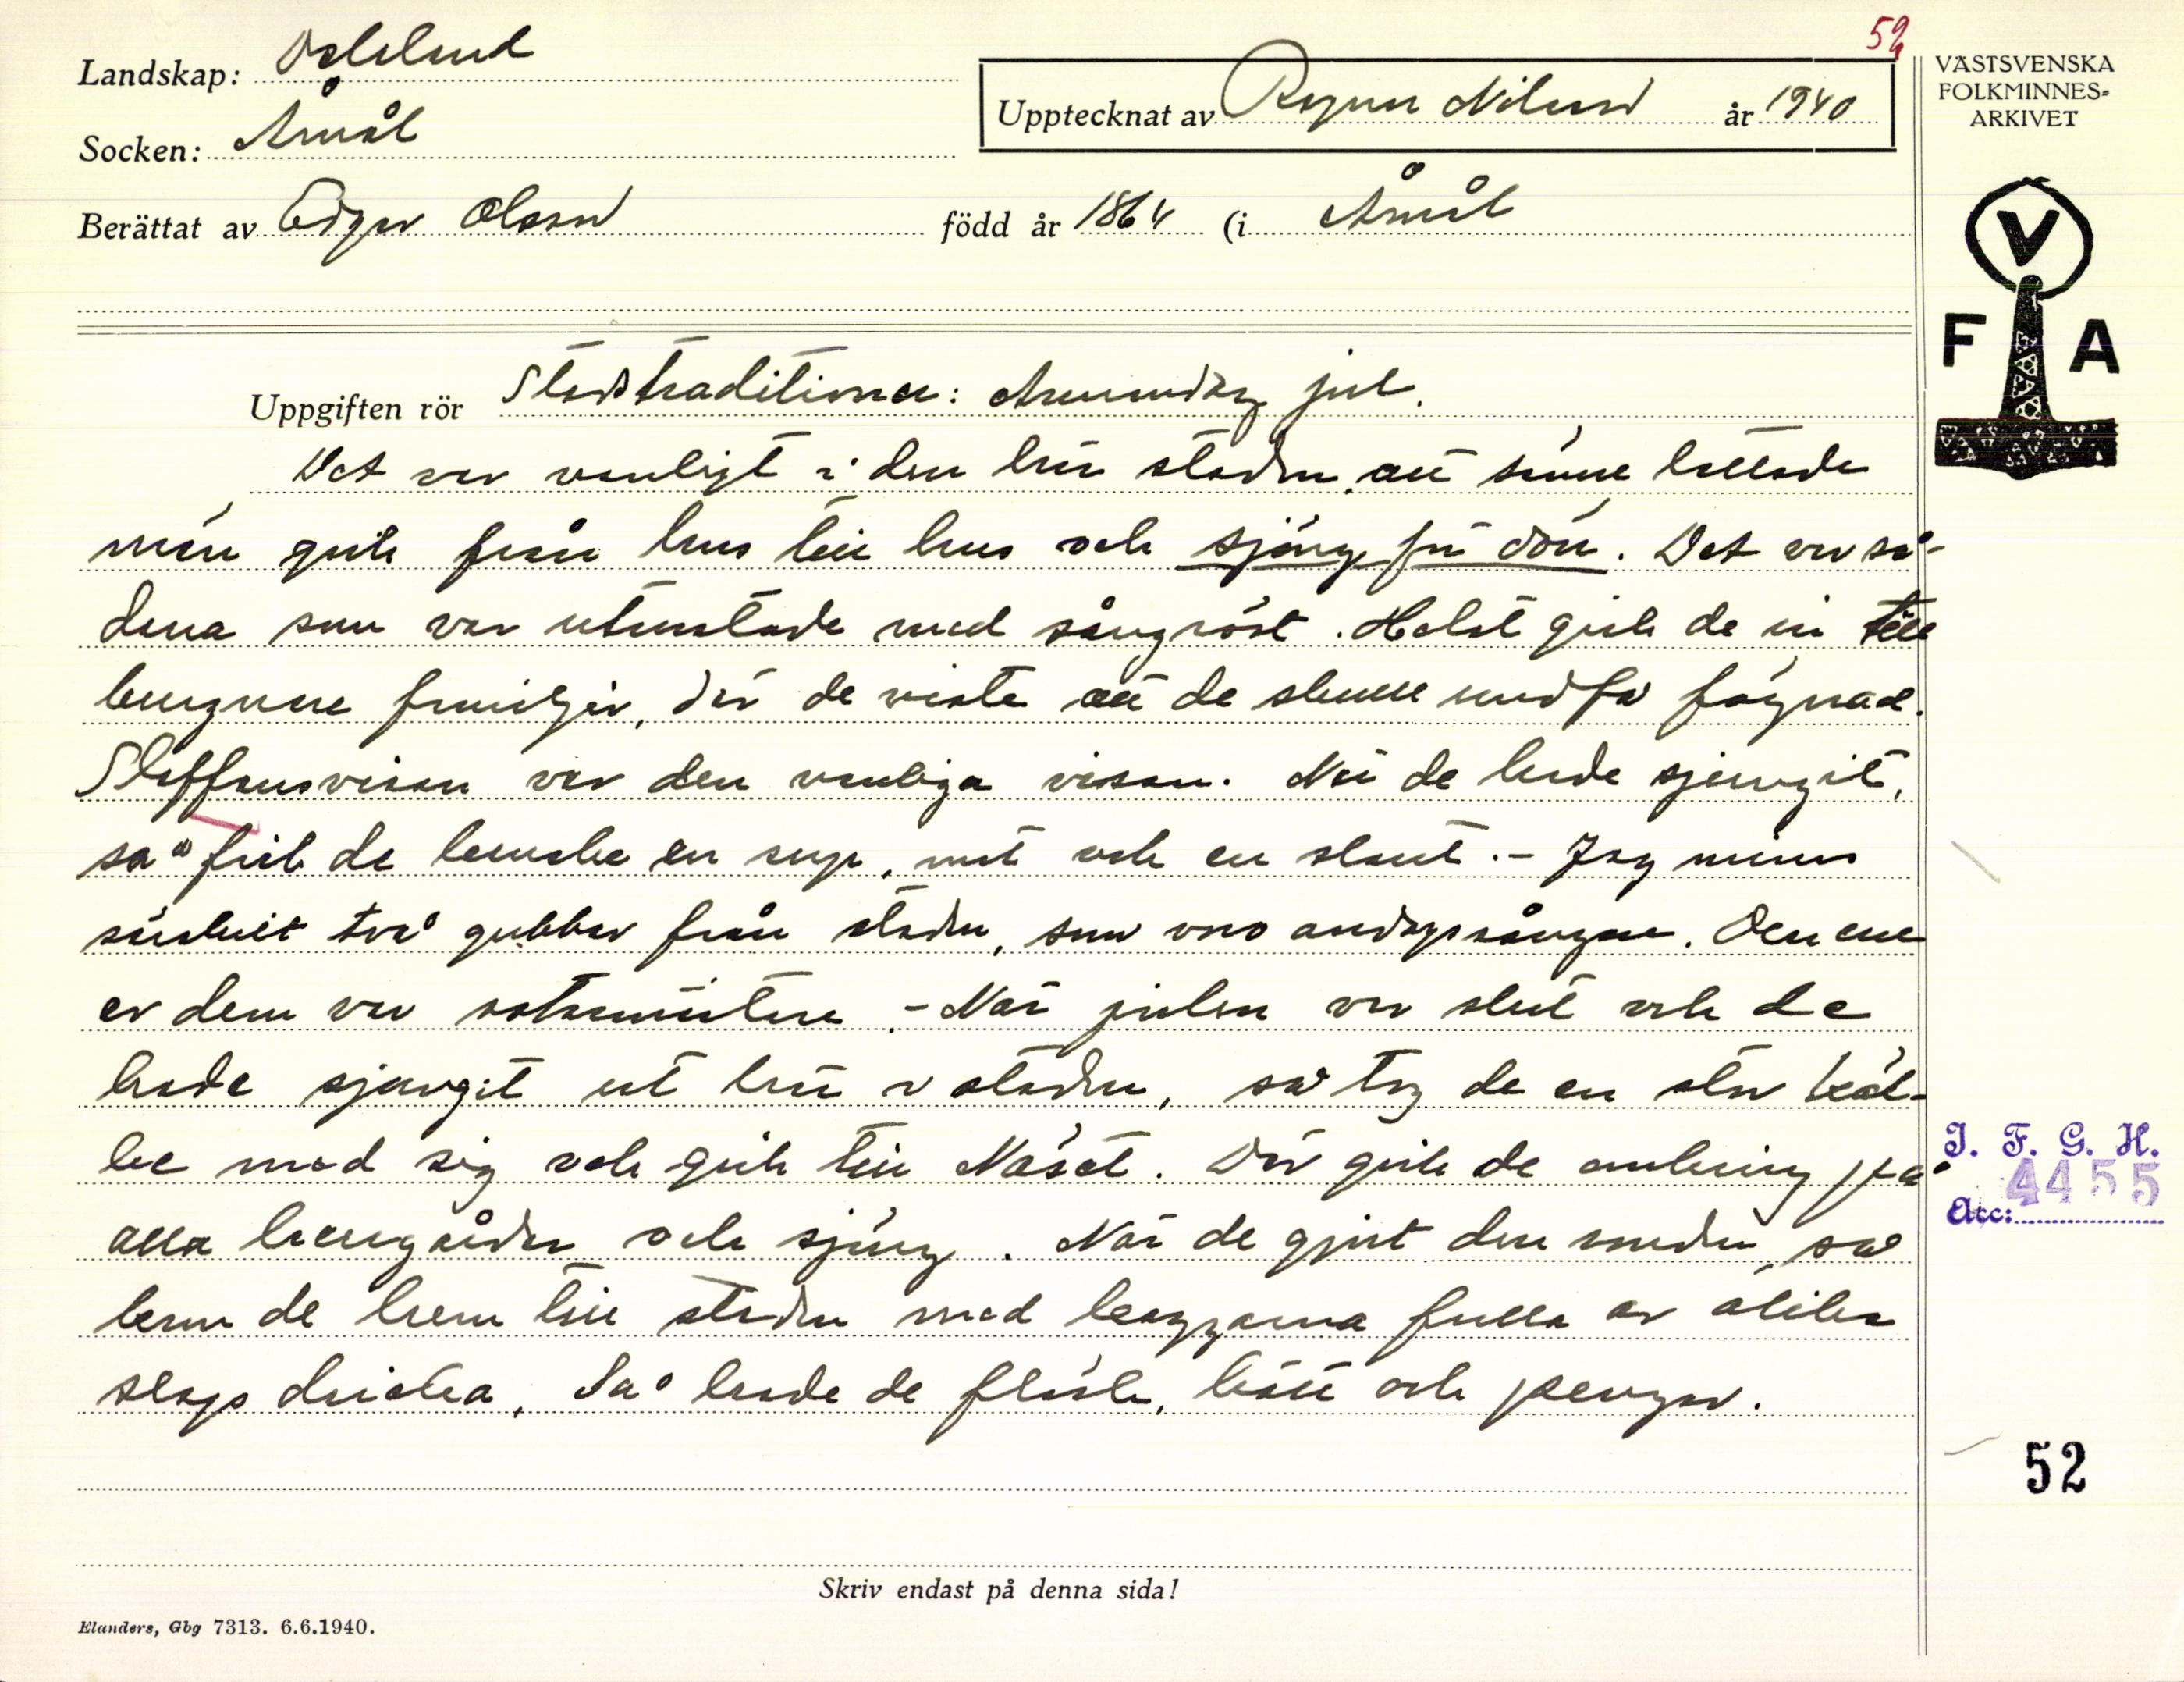 52
Landskap: Dalsland
Upptecknat av Ragnar Nilsson år 1940
VÄSTSVENSKA
FOLKMINNES-
ARKIVET
Socken: Åmål
Berättat av Edgar Olsson född år 1864 (i Åmål
V
F A
Uppgiften rör Stadstraditioner: Annandag jul.
Det var vanligt i den här staden, att somme kallade
män gick från hus till hus och sjöng för dörr. Det var så-
dana som var utrustade med sångröst. Helst gick de in till
burgnare familjer, där de visste att de skulle undfå fägnad.
Staffansvisan var den vanliga visan. När de hade sjungit,
så fick de kanske en sup, mat och en slant. - Jag minns
särskilt två gubbar från staden, som voro andagssångare. Den ene
av dem var sotarmästare. - När julen var slut och de
hade sjungit ut här i staden, så tog de en stor käl-
ke med sig och gick till Näset. Där gick de omkring på
alla herrgårdar och sjöng. När de gjort den ronden, så
kom de hem till staden med kaggarna fulla av olika
slags dricka. Så hade de fläsk, kött och pengar.
I. F. G. H.
4455
Acc:
52
Skriv endast på denna sida!
Elanders, Gbg 7313. 6.6.1940.